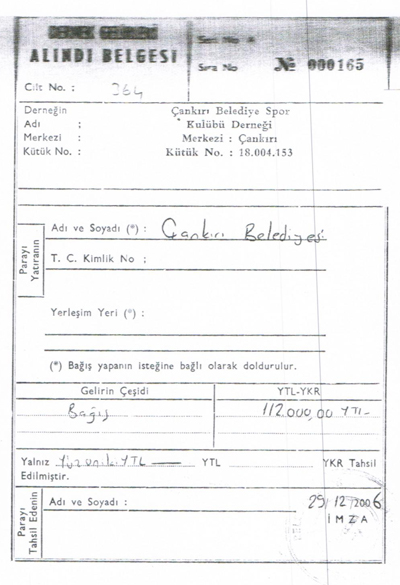 DERNEK GELİRLERİ
ALINDI BELGESİ
Seri No A
Sıra No № 000165
Cilt No. : 364
Derneğin
Adı :
Merkezi :
Kütük No. :
Çankırı Belediye Spor
Kulübü Derneği
Merkezi : Çankırı
Kütük No. : 18.004.153
Parayı Yatıranın
Adı ve Soyadı (*) : Çankırı Belediyesi
T. C. Kimlik No :
Yerleşim Yeri (*) :
(*) Bağış yapanın isteğine bağlı olarak doldurulur.
Gelirin Çeşidi YTL-YKR
Bağış 112.000,00 YTL-
Yalnız Yüzoniki YTL — YTL YKR Tahsil
Edilmiştir.
Parayı Tahsil Edenin
Adı ve Soyadı : 29/12/2006
İMZA